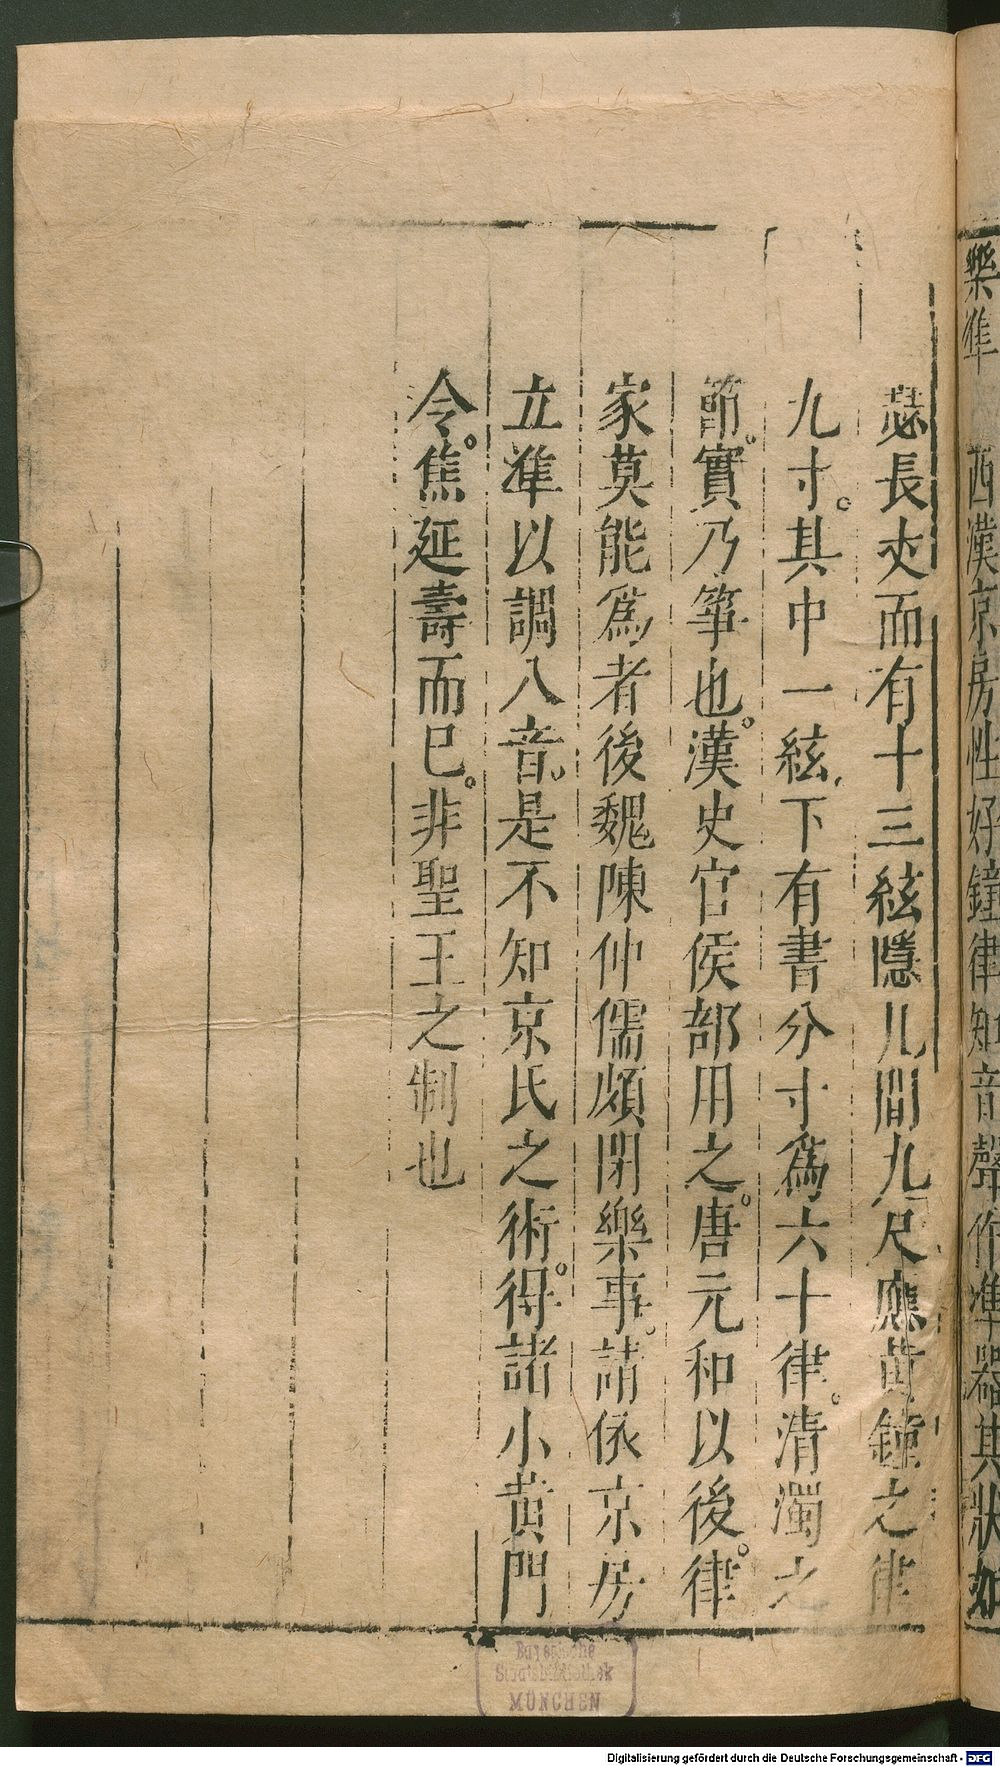 樂準　西漢京房性好鐘律知音聲作準器其狀如
瑟長丈而有十三絃隱几間九尺應黃鐘之律
九寸。其中一絃下有書分寸爲六十律。清濁之
節。實乃筝也。漢史官侯部用之。唐元和以後。律
家莫能爲者後魏陳仲儒頗閉樂事。請依京房
立準以調八音。是不知京氏之術。得諸小黃門
令。焦延壽而已。非聖王之制也
Bayerische
Staatsbibliothek
MÜNCHEN
Digitalisierung gefördert durch die Deutsche Forschungsgemeinschaft - DFG